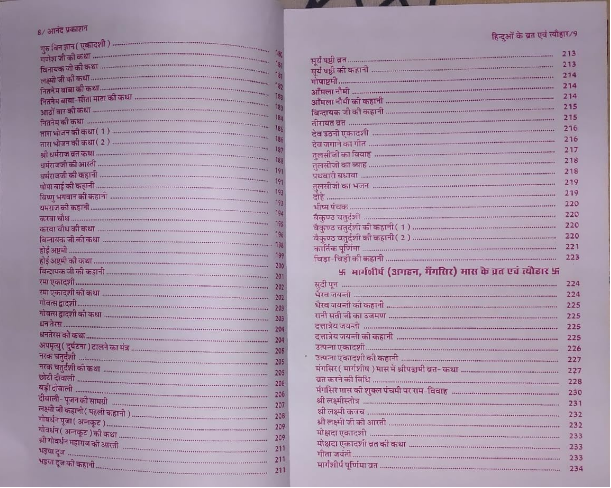 8/ आनंद प्रकाशन
गुरु बिन ज्ञान ( एकादशी )
गणेश जी की कथा
विनायक जी की कथा
लक्ष्मी जी की कथा
नितनेम बाबा की कथा
नितनेम बाबा-सीता माता की कथा
आठों वार की कथा
नितनेम की कथा
तारा भोजन की कथा ( 1 )
तारा भोजन की कथा ( 2 )
श्री धर्मराज व्रत कथा
धर्मराजजी की आरती
धर्मराजजी की कहानी 191
पोपा बाई की कहानी 191
विष्णु भगवान की कहानी 193
धर्मराज की कहानी 194
करवा चौथ 194
करवा चौथ की कथा
विनायक जी की कथा
होई अष्टमी
होई अष्टमी की कथा
विन्दायक जी की कहानी 200
रमा एकादशी 201
रमा एकादशी की कथा 202
गोवत्स द्वादशी 203
गोवत्स द्वादशी की कथा 203
धन तेरस 203
धनतेरस की कथा 204
अपमृत्यु ( दुर्घटना ) टालने का मंत्र
नरक चतुर्दशी
नरक चतुर्दशी की कथा 205
छोटी दीवाली
बड़ी दीवाली
दीवाली- पूजन की सामग्री
लक्ष्मी जी कहानी ( पहली कहानी ) 207
गोवर्धन पूजा ( अन्नकूट ) 208
गोवर्धन ( अन्नकूट ) की कथा 209
श्री गोवर्धन महाराज की आरती 209
भइया दूज 211
भइया दूज की कहानी 211
हिन्दूओं के व्रत एवं त्यौहार/9
सूर्य षष्ठी व्रत 213
सूर्य षष्ठी की कहानी 213
गोपाष्टमी 214
आँमला नौमी 214
आँमला नौमी की कहानी 214
विन्दायक जी की कहानी 215
तीरायत व्रत 215
देव उठनी एकादशी 216
देव जगाने का गीत 216
तुलसीजी का विवाह 217
तुलसीजी का ब्याह 218
पथवारी सधावा 218
तुलसीजी का भजन 219
दोहे 219
भीष्म पंचक 220
वैकुण्ठ चतुर्दशी 220
वैकुण्ठ चतुर्दशी की कहानी ( 1 ) 220
वैकुण्ठ चतुर्दशी की कहानी ( 2 ) 220
कार्तिक पूर्णिमा 221
चिड़ा-चिड़ी की कहानी 223
卐 मार्गशीर्ष (अगहन, मँगसिर) मास के व्रत एवं त्यौहार 卐
सुदी पून 224
भैरव जयन्ती 224
भैरव जयंती की कहानी 225
रानी सती जी का उजमण 225
दत्तात्रेय जयन्ती 225
दत्तात्रेय जयंती की कहानी 225
उत्पन्ना एकादशी 226
उत्पन्ना एकादशी की कहानी 227
मंगसिर ( मार्गशीष ) मास में श्रीपञ्चमी व्रत- कथा 227
व्रत करने की विधि 228
मंगसिर मास की शुक्ल पंचमी पर राम- विवाह 230
श्री लक्ष्मीस्तोत्र 231
श्री लक्ष्मी कवच 232
श्री लक्ष्मी जी की आरती 232
मोक्षदा एकादशी 233
मोक्षदा एकादशी व्रत की कथा 233
गीता जयंती 233
मार्गशीर्ष पूर्णिमा व्रत 234